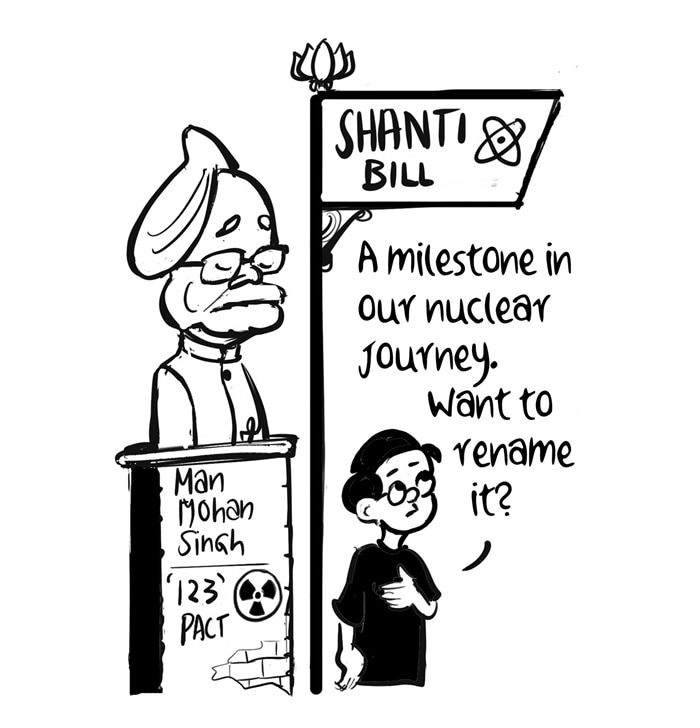 SHANTI
BILL
A milestone in
our nuclear
journey.
Want to
rename
it?
Man
Mohan
Singh
'123'
PACT